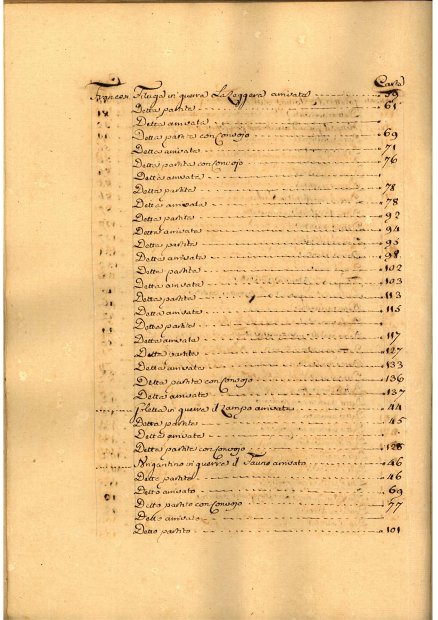 F Carta
Francesi Filuga in guerra La Leggera arrivata 59
Detta partita 61
Detta arrivata
Detta partita con Convojo 69
Detta arrivata 71
Detta partita con Convojo 76
Detta arrivata
Detta partita 78
Detta arrivata 78
Detta partita 92
Detta arrivata 94
Detta partita 95
Detta arrivata 98
Detta partita 102
Detta arrivata 103
Detta partita 113
Detta arrivata 115
Detta partita
Detta arrivata 117
Detta partita 127
Detta arrivata 133
Detta partita con Convojo 136
Detta arrivata 137
in guerra il Lampo arrivata 44
Detta partita 45
Detta arrivata
Detta partita con Convojo 128
Brigantino in guerra il Fauno arrivato 46
Detto partito 46
Detto arrivato 69
Detto partito con Convojo 77
Detto arrivato
Detto partito 101